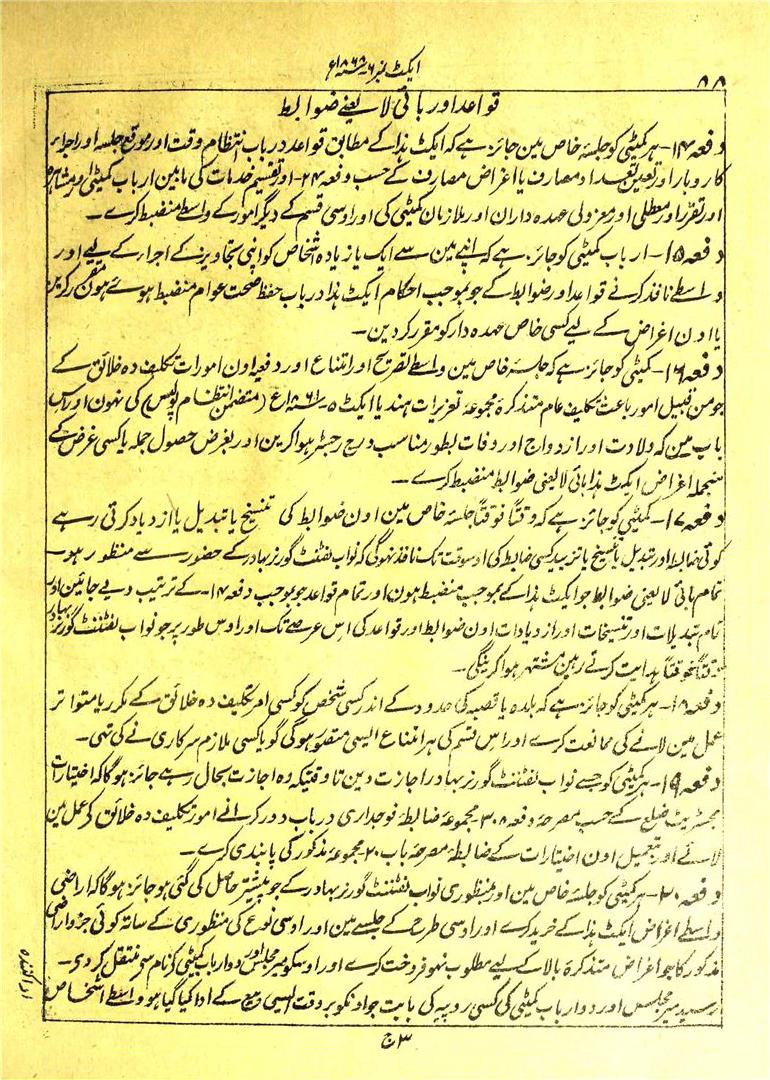 ۸۸
ایکٹ نمبر ۶ سنہ ۱۸۶۸ع
قواعد اور بائی لا یعنے ضوابط
دفعہ ۱۴- ہر کمیٹی کو جلسۂ خاص مین جائز ہے کہ ایکٹ ہذا کے مطابق قواعد درباب انتظام وقت اور موقع جلسہ اور اجراے
کاروبار اور تعین تعداد مصارف یا اغراض مصارف کے حسب دفعہ ۲۴- اور تقسیم خدمات کی مابین ارباب کمیٹی اور مشاہرہ
اور تقرر اور معطلی اور معزولی عہدہ داران اور ملازمان کمیٹی کی اور اوسی قسم کے دیگر امور کے واسطے منضبط کرے-
دفعہ ۱۵- ارباب کمیٹی کو جائز ہے کہ اپنے مین سے ایک یا زیادہ اشخاص کو اپنی تجاویز کے اجراء کے لیے اور
واسطے نافذ کرنے قواعد اور ضوابط کے جو بموجب احکام ایکٹ ہذا درباب حفظ صحت عوام منضبط ہوے ہون مقرر کرین
یا اون اغراض کے لیے کسی خاص عہدہ دار کو مقرر کر دین-
دفعہ ۱۶- کمیٹی کو جائز ہے کہ جلسۂ خاص مین واسطے تصریح اور امتناع اور دفعیہ اون امورات تکلیف دہ خلائق کے
جو من قبیل امور باعث تکلیف عام متذکرہ مجموعہ تعزیرات ہند یا ایکٹ ۵- ۱۸۶۱ع (متضمن انتظام پولیس) کی نہون اور اس
باب مین کہ ولادت اور ازدواج اور وفات بطور مناسب درج رجسٹر ہوا کرین اور بغرض حصول جملہ یا کسی غرض کے
منجملہ اغراض ایکٹ ہذا بائی لا یعنی ضوابط منضبط کرے-
دفعہ ۱۷- کمیٹی کو جائز ہے کہ وقتاً فوقتاً جلسۂ خاص مین اون ضوابط کی تنسیخ یا تبدیل یا ازدیاد کرتی رہے
کوئی ضابطہ اور تبدیل یا تنسیخ یا تزیید کسی ضابطے کی اوسوقت تک نافذ نہوگی کہ نواب لفٹنٹ گورنر بہادر کے حضور سے منظور ہو-
تمام بائی لا یعنی ضوابط جو ایکٹ ہذا کے بموجب منضبط ہون اور تمام قواعد جو بموجب دفعہ ۱۴- کے ترتیب دیے جائین اور
تمام تبدیلات اور تنسیخات اور ازدیادات اون ضوابط اور قواعد کی اس عرصے تک اور اوس طور پر جو نواب لفٹنٹ گورنر بہادر
وقتاً فوقتاً ہدایت کرتے رہین مشتہر ہوا کرینگی-
دفعہ ۱۸- ہر کمیٹی کو جائز ہے کہ بلدہ یا قصبہ کی حدود کے اندر کسی شخص کو کسی امر تکلیف دہ خلائق کے مکرر یا متواتر
عمل مین لانے کی ممانعت کرے اور اس قسم کی ہر امتناع ایسی متصور ہوگی گویا کسی ملازم سرکاری نے کی تھی-
دفعہ ۱۹- ہر کمیٹی کو جسے نواب لفٹنٹ گورنر بہادر اجازت دین تاوقتیکہ وہ اجازت بحال رہے جائز ہوگا کہ اختیارات
مجسٹریٹ ضلع کے حسب مصرحہ دفعہ ۳۰۸ مجموعہ ضابطۂ فوجداری درباب دور کرانے امور تکلیف دہ خلائق کے عمل مین
لائے اور تعمیل اون اختیارات کے ضابطۂ مصرحہ باب ۲۰- مجموعۂ مذکور کی پابندی کرے-
دفعہ ۲۰- ہر کمیٹی کو جلسۂ خاص مین اور منظوری نواب لفٹننٹ گورنر بہادر کے جو پیشتر حاصل کی گئی ہو جائز ہوگا کہ اراضی
واسطے اغراض ایکٹ ہذا کے خرید کرے اور اوسی طرح کے جلسے مین اور اوسی نوع کی منظوری کے ساتھ کوئی جزو اراضی
مذکور کا جو اغراض متذکرۂ بالا کے لیے مطلوب نہو فروخت کرے اور اوسکو میر مجلس اور دو ارباب کمیٹی کے نام سے منتقل کر دی-
رسید میر مجلس اور دو ارباب کمیٹی کی کسی روپیہ کی بابت جو اونکو بر وقت ایسی بیع کے ادا کیا گیا ہو واسطے اشخاص
ادا کنندہ
۳ ج